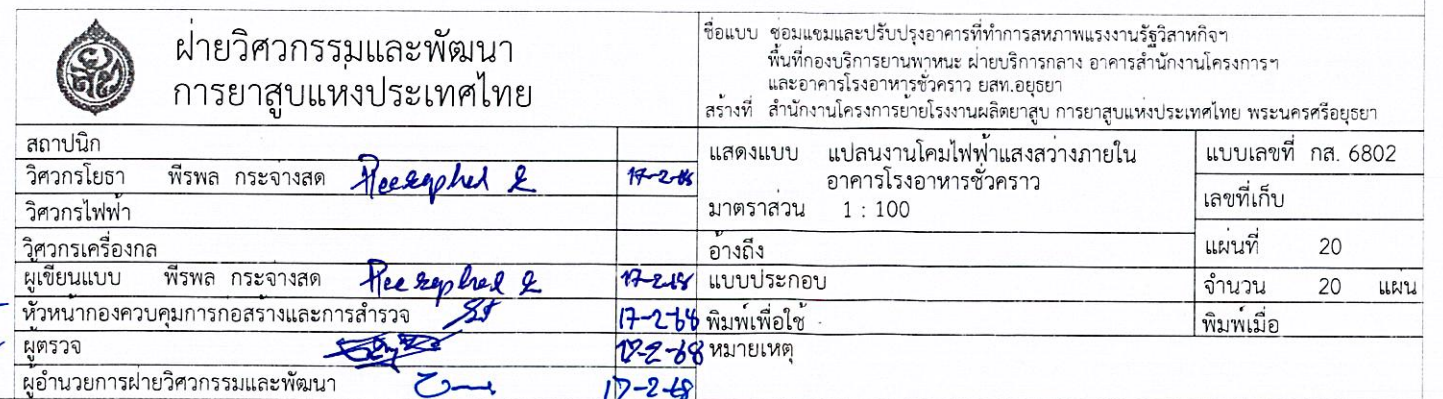 ฝ่ายวิศวกรรมและพัฒนา
การยาสูบแห่งประเทศไทย
ชื่อแบบ ซ่อมแซมและปรับปรุงอาคารที่ทำการสหภาพแรงงานรัฐวิสาหกิจฯ
พื้นที่กองบริการยานพาหนะ ฝ่ายบริการกลาง อาคารสำนักงานโครงการฯ
และอาคารโรงอาหารชั่วคราว ยสท.อยุธยา
สร้างที่ สำนักงานโครงการย้ายโรงงานผลิตยาสูบ การยาสูบแห่งประเทศไทย พระนครศรีอยุธยา
สถาปนิก
วิศวกรโยธา พีรพล กระจ่างสด 17-2-68
วิศวกรไฟฟ้า
วิศวกรเครื่องกล
ผู้เขียนแบบ พีรพล กระจ่างสด 17-2-68
หัวหน้ากองควบคุมการก่อสร้างและการสำรวจ 17-2-68
ผู้ตรวจ 17-2-68
ผู้อำนวยการฝ่ายวิศวกรรมและพัฒนา 17-2-68
แสดงแบบ แปลนงานโคมไฟฟ้าแสงสว่างภายใน
อาคารโรงอาหารชั่วคราว
มาตราส่วน 1 : 100
อ้างถึง
แบบประกอบ
พิมพ์เพื่อใช้
หมายเหตุ
แบบเลขที่ กส. 6802
เลขที่เก็บ
แผ่นที่ 20
จำนวน 20 แผ่น
พิมพ์เมื่อ